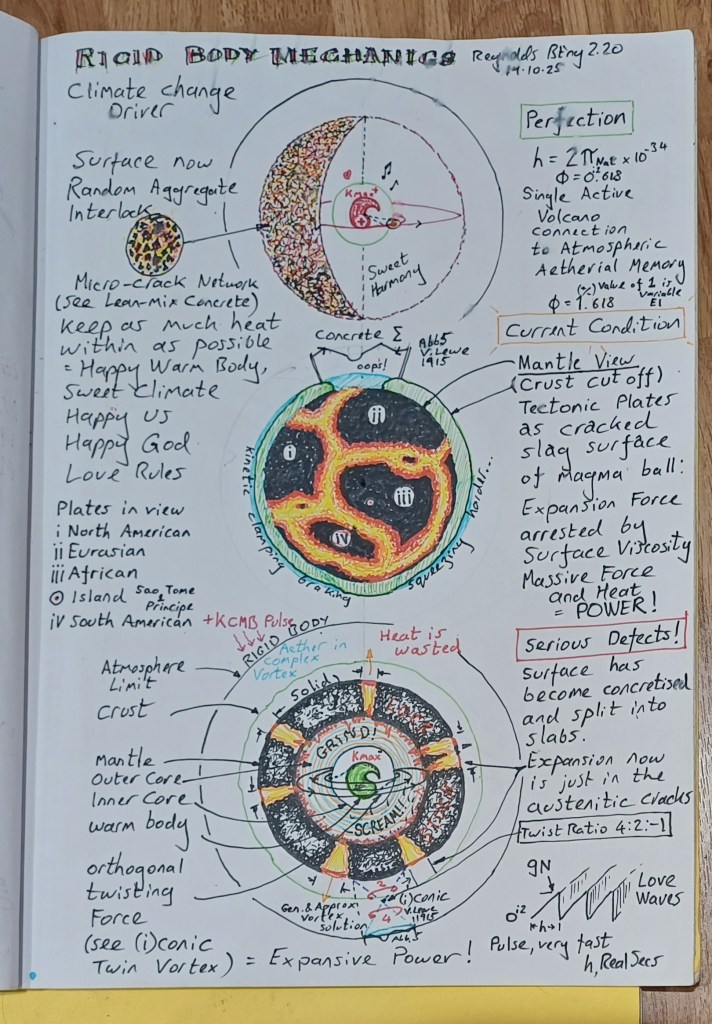 RIGID BODY MECHANICS
19.10.25
Climate change
Driver
Surface now
Random Aggregate
Interlock
Micro-Crack Network
(see Lean-Mix Concrete)
Keep as much heat
within as possible
= Happy Warm Body,
Sweet Climate
Happy US
Happy God
Love Rules
Plates in view
i North American
ii Eurasian
iii African
Island Sao Tome
Principe
iv South American
Kmax
Sweet
Harmony
Perfection
h = 2π Nat × 10-34
Φ = 0.618
Single Active
Volcano
connection
to Atmospheric
Aetherial Memory
value of 1 is
variable
Φ = 1.618
Current Condition
Concrete Σ
Abb5
V. Lewe
1915
oops!
ii
i
iii
iv
kinetic clamping braking squeezing harder...
Mantle View
(Crust cut off)
Tectonic Plates
as cracked
slag surface
of magma ball:
Expansion Force
arrested by
Surface Viscosity
Massive Force
and Heat
= POWER!
Serious Defects!
surface has
become concretised
and split into
slabs.
Expansion now
is just in the
austenitic cracks
Twist Ratio 4:2:-1
+KCMB Pulse
RIGID BODY
Aether in
complex
Vortex
Heat is
wasted
Atmosphere
Limit
Crust
solid
GRIND!
Kmax
SCREAM!!
Mantle
Outer Core
Inner Core
warm body
orthogonal
twisting
Force
(see (i)conic
Twin Vortex) = Expansive Power!
Gen. & Approx
Vortex
solution
2
4
(i)conic
V. Lewe
1915
Abb5
gN
h
Love
Waves
Pulse, very fast
h, Real Secs